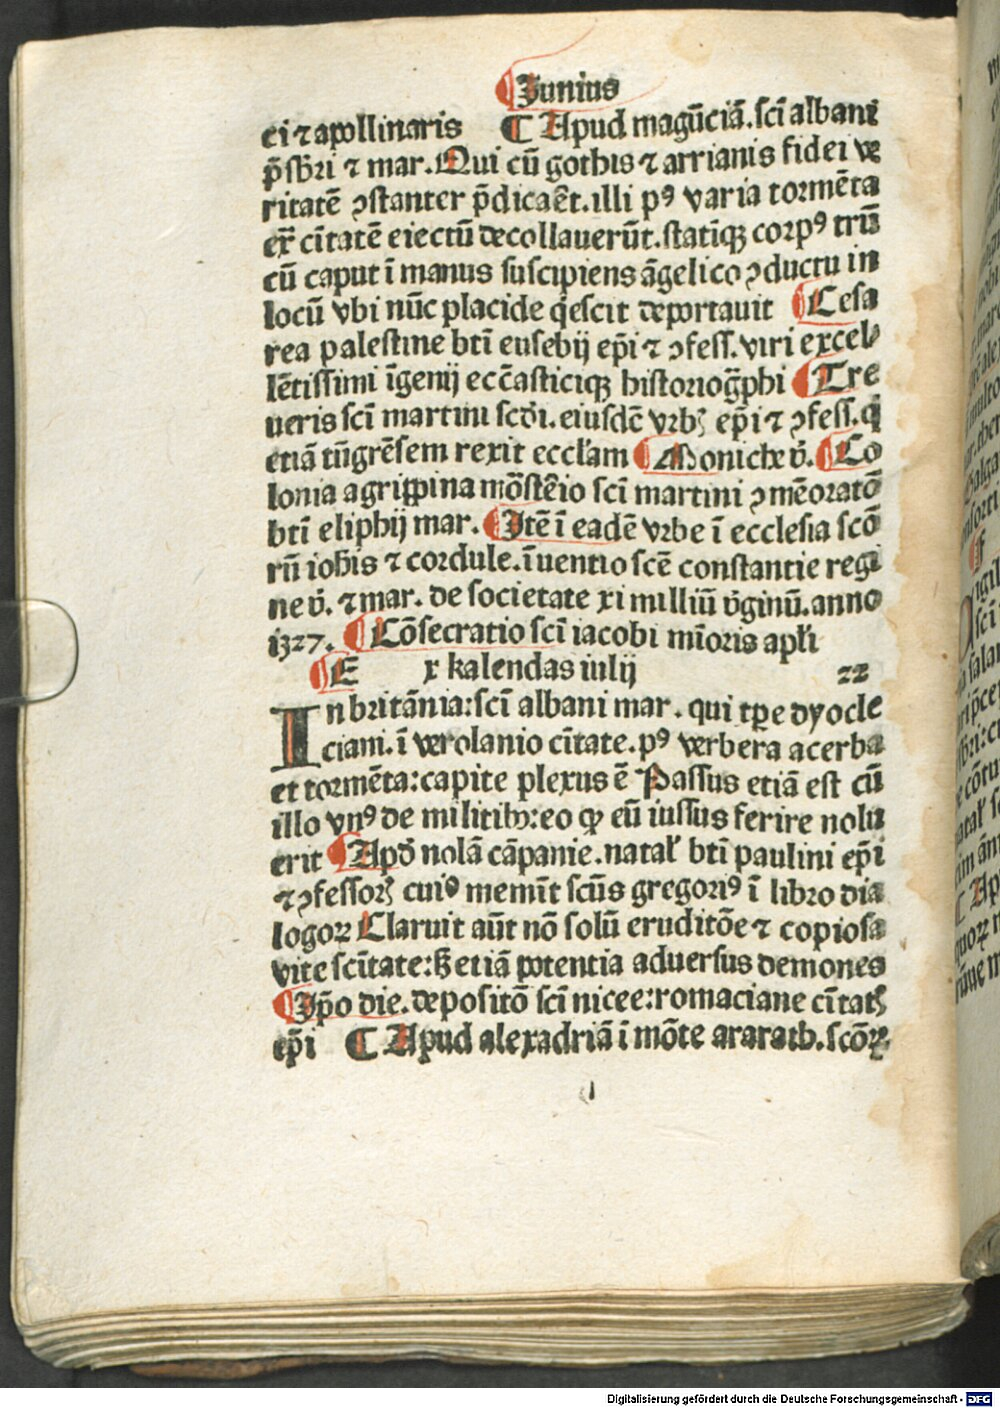 Junius
ei ⁊ apollinaris ¶ Apud magūciā. sci̅ albani
p̄sb̄ri ⁊ mar. Qui cū gothis ⁊ arrianis fidei ve
ritatē ꝯstanter p̄dicaēt. illi pꝰ varia tormēta
ex̄ ci̅tatē eiectū decollauerūt. stati̅qꝫ corpꝰ trū
cū caput i̅ manus suscipiens āgelico ꝯductu in
locū vbi nūc placide q̇escit deportauit ¶ Cesa
rea palestine bti̅ eusebij ep̄i ⁊ ꝯfess. viri excel
lētissimi i̅genij ecc̄asticiqꝫ historiog̅phi ¶ Tre
ueris sci̅ martini scdi̅. eiusdē vrbꝭ ep̄i ⁊ ꝯfess. q̇
etiā tūgrēsem rexit eccl'am ¶ Moniche v̇. ¶ Co
lonia agrippina mōstēio sci̅ martini ꝯmēoratō
bti̅ eliphij mar. ¶ Jtē i̅ eadē vrbe i̅ ecclesia scō
rū ioh̄is ⁊ cordule. i̅uentio scē constantie regi
ne v̇. ⁊ mar. de societate xi milliū v̇ginū. anno
1327. ¶ Cōsecratio sci̅ iacobi mi̅oris apl'i
¶ E x kalendas iulij 22
Jn britānia: sci̅ albani mar. qui tꝑe dyocle
ciani. i̅ verolanio ci̅tate. pꝰ verbera acerba
et tormēta: capite plexus ē Passus etiā est cū
illo vnꝰ de militibꝫ: eo ꝙ eū iussus ferire nolu
erit ¶ Apd̄ nolā cāpanie. natal' bti̅ paulini ep̄i
⁊ ꝯfessorꝭ cuiꝰ memīt scūs gregoriꝰ i̅ libro dia
logoꝝ Claruit aūt nō solū eruditōe ⁊ copiosa
vite sci̅tate: sꝫ etiā potentia aduersus demones
¶ Jp̄o die. depositō sci̅ nicee: romaciane ci̅tatꝭ
ep̄i ¶ Apud alexadriā i̅ mōte ararath. scōꝝ
Digitalisierung gefördert durch die Deutsche Forschungsgemeinschaft - DFG